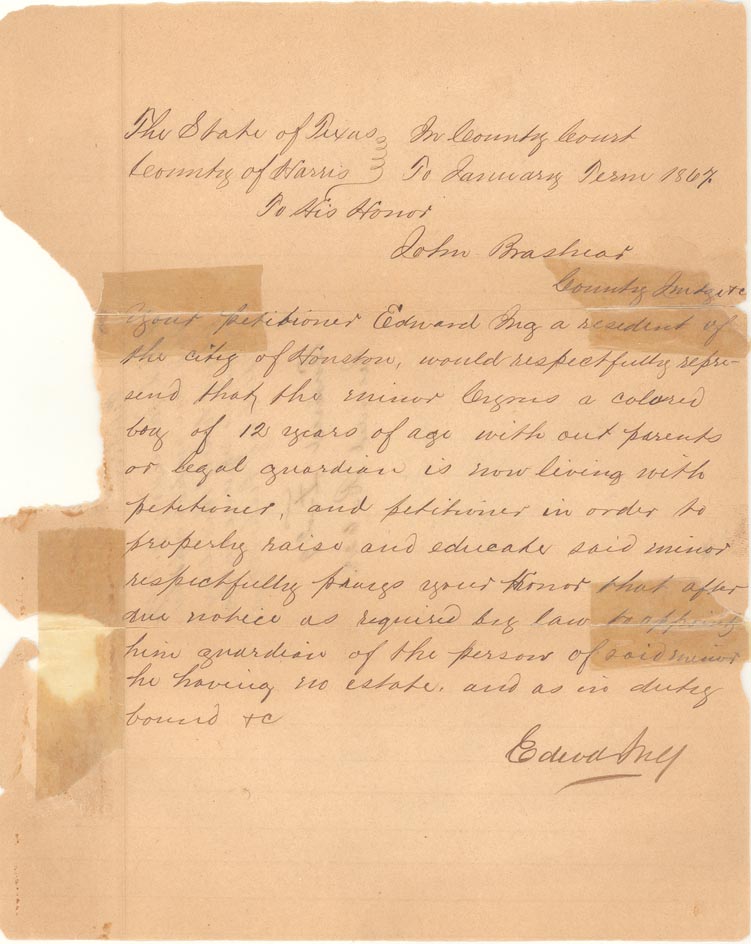 The State of Texas In County Court
County of Harris To January Term 1867
To His Honor
John Brashear
County Judge etc
Your petitioner Edward Ing a resident of
the city of Houston, would respectfully repre-
send that, the minor Cyrus a colored
boy of 12 years of age with out parents
or legal guardian is now living with
petitioner, and petitioner in order to
properly raise and educate said minor
respectfully prays your Honor that after
due notice as required by law to appoint
him guardian of the person of said minor
he having no estate. and as in duty
bound &c
Edwd